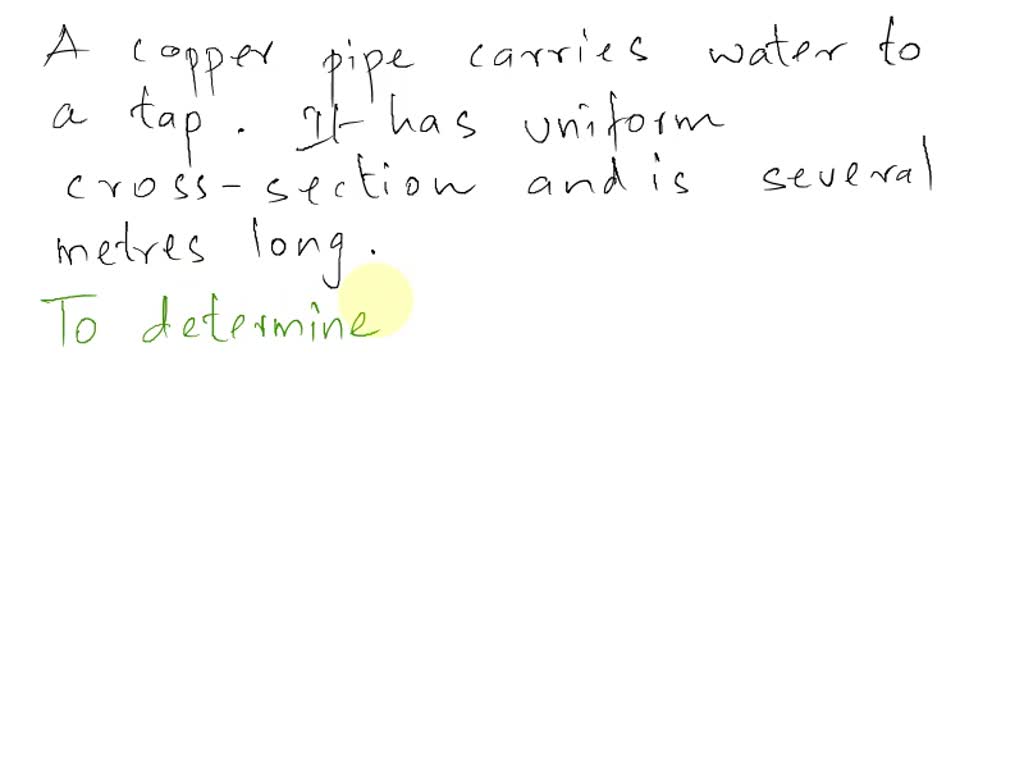 A copper pipe carries water to
a tap. It has uniform
cross-section and is several
metres long.
To determine